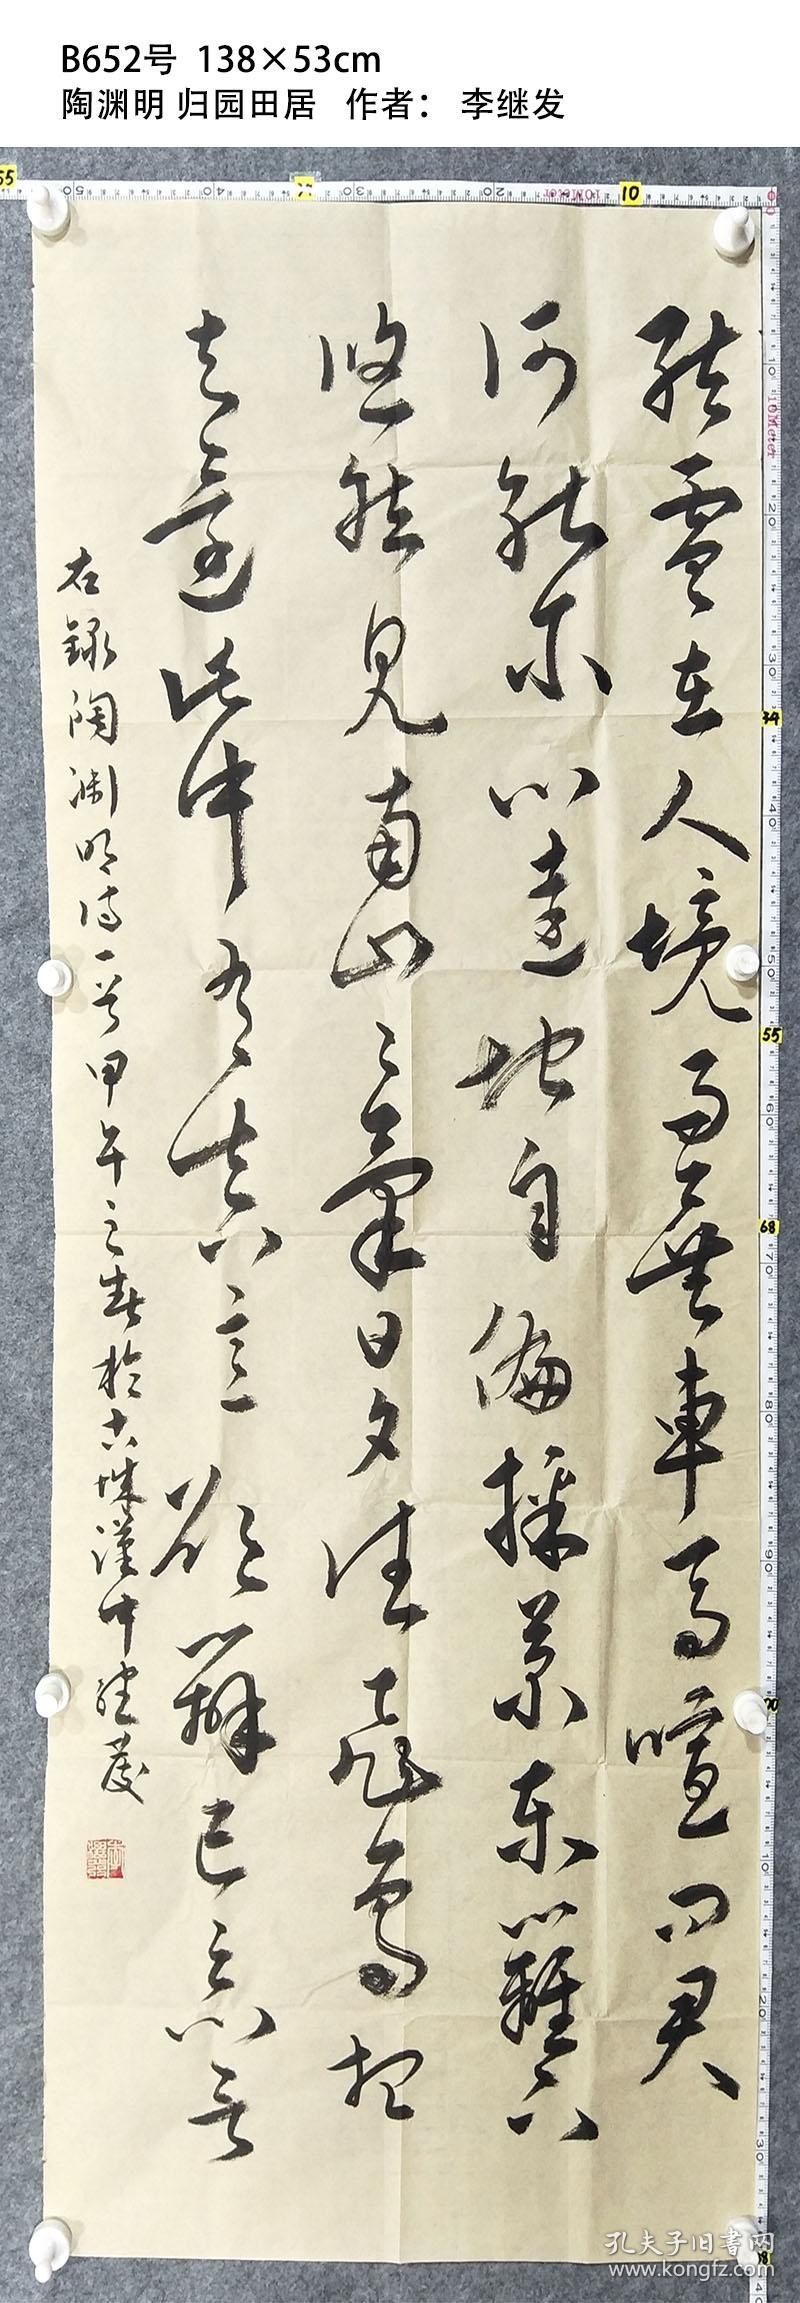 B652号 138×53cm
陶渊明 归园田居 作者： 李继发
結廬在人境而無車馬喧问君
何能尔心遠地自偏採菊东籬下
悠然見南山々氣日夕佳飛鳥相
与還此中有真意欲辩已忘言
右録陶渊明诗一首甲午之春於古城漢中继发
孔夫子旧书网
www.kongfz.com